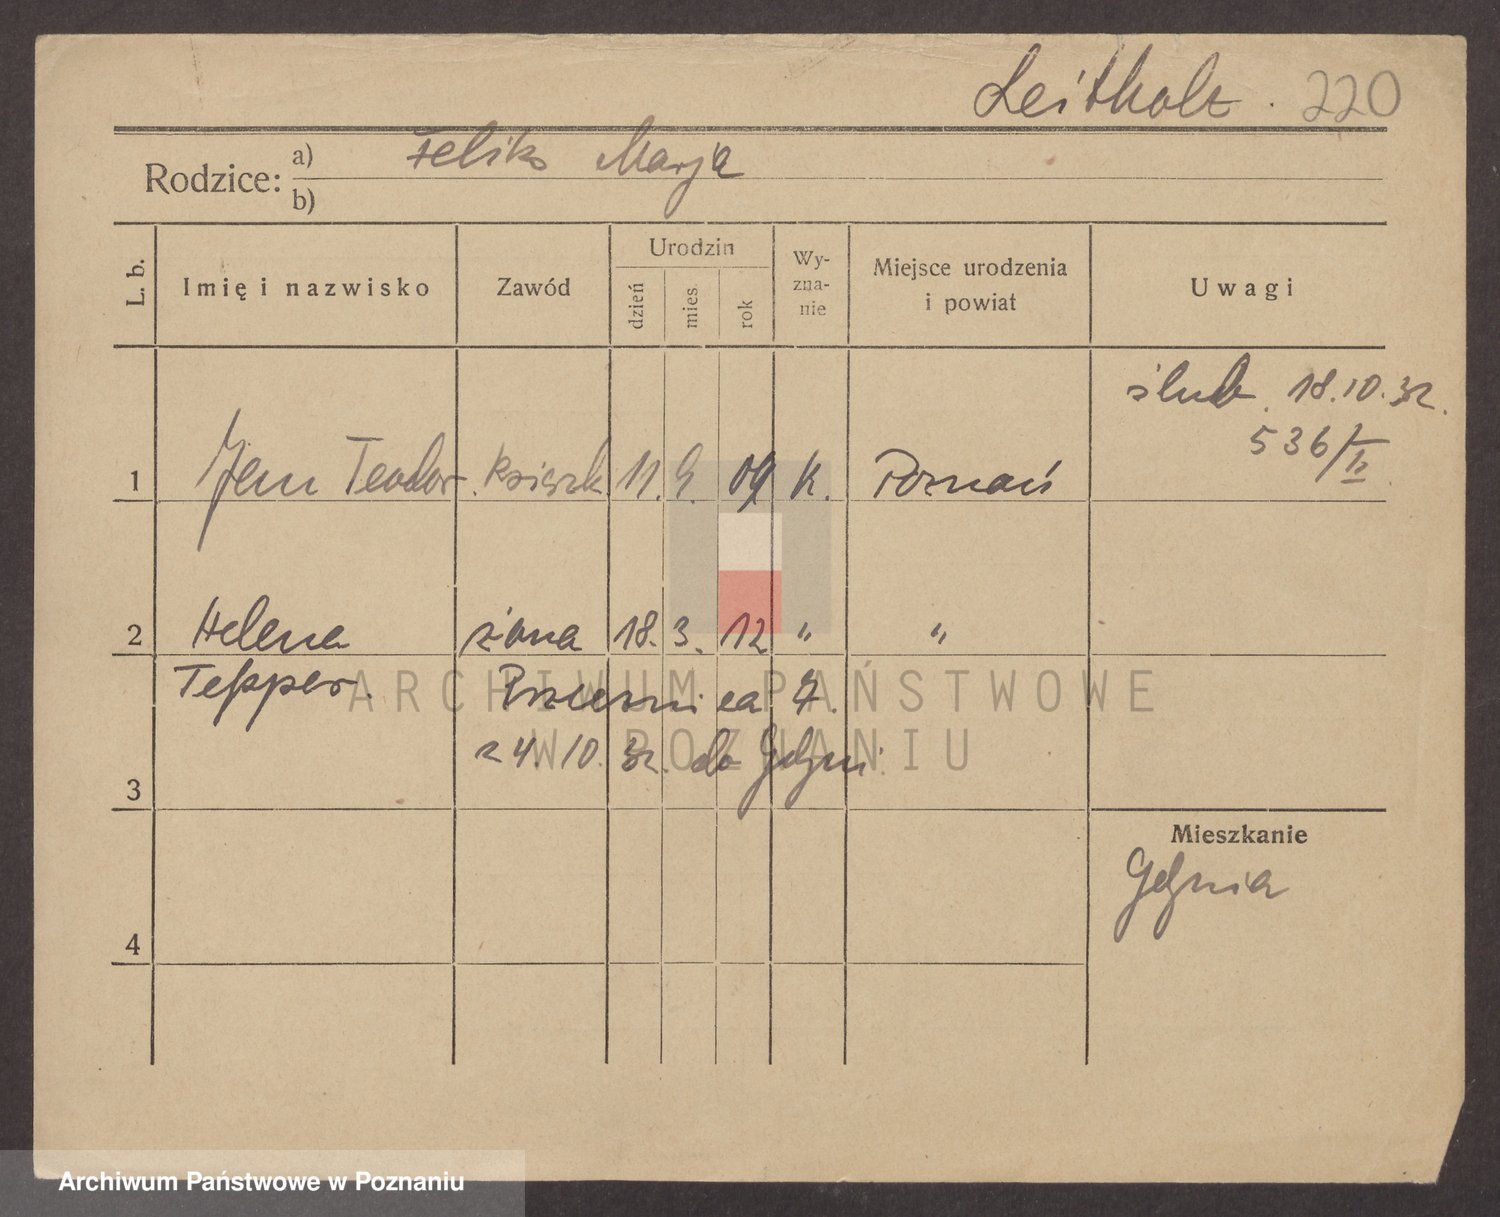 Leitholz. 220
Rodzice: a) Feliks Marja
b)
L. b. Imię i nazwisko Zawód Urodzin dzień mies. rok Wy-zna-nie Miejsce urodzenia i powiat Uwagi
ślub. 18.10.32.
536/II
1 Jan Teodor. 11. 9. 09 k. Poznań
2 Helena żona 18. 3. 12 " "
Tepper. 7.
24. 10 32. do Gdyni
3
Mieszkanie
Gdynia
4
ARCHIWUM PAŃSTWOWE
W POZNANIU
Archiwum Państwowe w Poznaniu